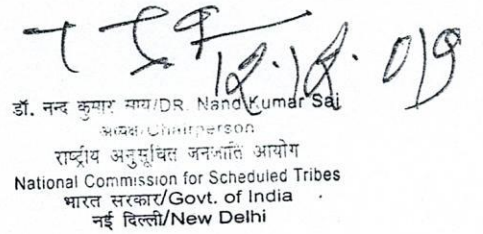 12.12.019
डॉ. नन्द कुमार साय/DR. Nand Kumar Sai
अध्यक्ष/Chairperson
राष्ट्रीय अनुसूचित जनजाति आयोग
National Commission for Scheduled Tribes
भारत सरकार/Govt. of India
नई दिल्ली/New Delhi